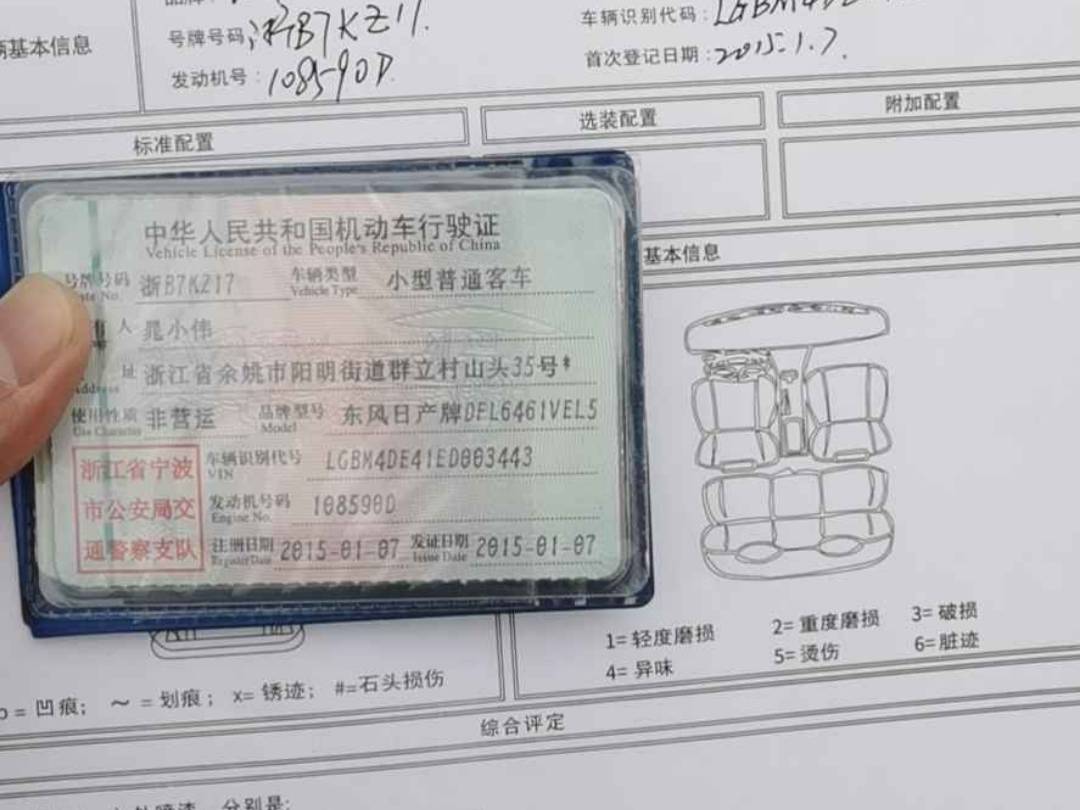 辆基本信息
号牌号码:浙B7KZ17.
车辆识别代码:LGBM4DE
发动机号:1085990D
首次登记日期:2015.1.7.
标准配置
选装配置
附加配置
基本信息
中华人民共和国机动车行驶证
Vehicle License of the People's Republic of China
号牌号码 浙B7KZ17 车辆类型 小型普通客车
Plate No. Vehicle Type
人 晁小伟
址 浙江省余姚市阳明街道群立村山头35号*
Address
使用性质 非营运 品牌型号 东风日产牌DFL6461VEL5
Use Character Model
浙江省宁波
市公安局交
通警察支队
车辆识别代号 LGBM4DE41ED003443
VIN
发动机号码 108590D
Engine No.
注册日期 2015-01-07 发证日期 2015-01-07
Register Date Issue Date
1=轻度磨损 2=重度磨损 3=破损
4=异味 5=烫伤 6=脏迹
=凹痕; ~=划痕; x=锈迹; #=石头损伤
综合评定
分别是: